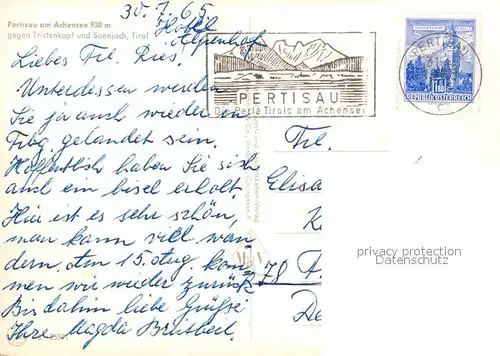 Pertisau am Achensee 930 m
gegen Tristenkopf und Sonnjoch, Tirol
30. 7. 65
Hotel
Alpenhof
Liebes Frl. Ries,
Unterdessen werden
Sie ja auch wieder in
Frbg. gelandet sein.
Hoffentlich haben Sie sich
auch ein bisel erholt.
Hier ist es sehr schön,
man kann viel wan
dern. Am 15. Aug. kom
men wir wieder zurück
Bis dahin liebe Grüße
Ihre Magda
PERTISAU
Die Perle Tirols am Achensee
PERTISAU
REPUBLIK ÖSTERREICH
Frl.
Elisa
78
privacy protection
Datenschutz